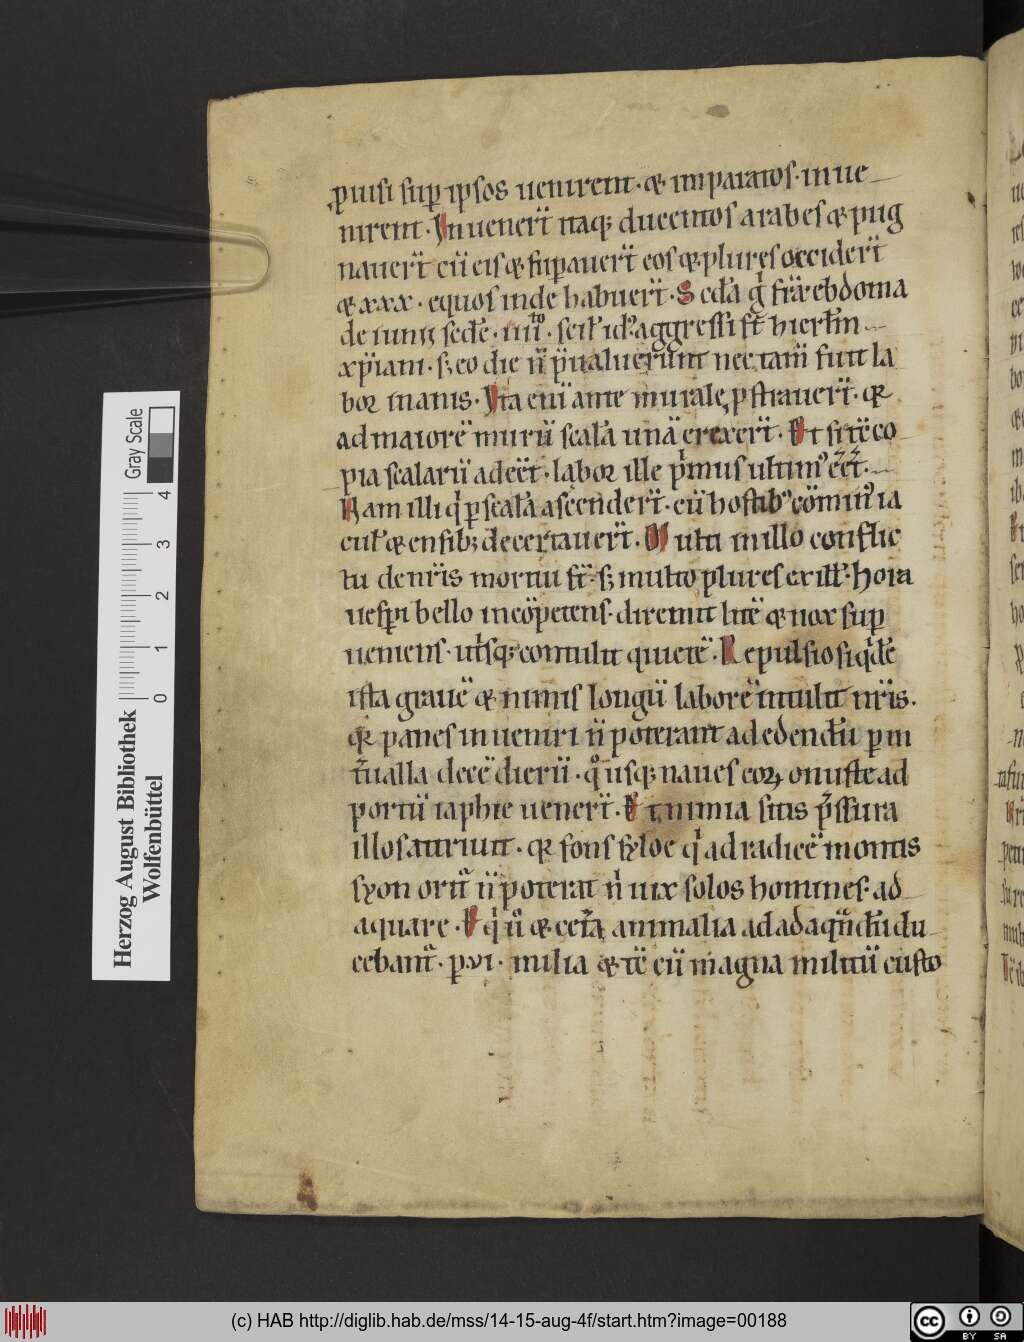 ꝓuisi suꝑ ipsos uenirent · ⁊ imparatos · inue
nirent · Inuener̄t itaq; ducentos arabes ⁊ pug
nauer̄t cū eis ⁊ suꝑauer̄t eos ⁊ plures occider̄t
⁊ xxx · equos inde habuer̄t · Secd̄a g̊ fr̄ia ebdoma
de iunij sed̄e · iiii
xp̄iani · s; eo die n̄ p̄ualuerunt nec tam̄ fuit la
boꝛ inanis · Ita cuī ante murale ꝓstrauer̄t · ⁊
ad maiorē murū scalā unā erexer̄t · Et si tc̄ co
pia scalarū adeēt · laboꝛ ille p̄mus ultim᷒ eēt · 
Nam illi q̇ ꝑ scalā ascender̄t · cū hostib᷒ cōmin᷒ ia
cul̄ ⁊ ensib; decertauer̄t · Multi in illo conflic
tu de nr̄is mortui st̄ · s; multo plures ex ill̄ · hora
uesꝑi bello incōpetens · diremit litē ⁊ nox suꝑ
ueniens · ut̄sq; contulit quietē · Repulsio siq̇dē
ista grauē ⁊ nimis longū laborē intulit nr̄is ·
⁊ panes inueniri n̄ poterant ad edendū ꝑ in
t̄ualla decē dierū · q̊usq; naues eoꝝ onuste ad
portū iaphie uener̄t · Et nimia sitis p̄ssura
illos attriuit · ⁊ fons syloe q̇ ad radicē montis
syon orit᷑ n̄ poterat n̄ uix solos homines · ad
aquare · Eq̇ ū ⁊ cet̄a animalia ad adaq̄ndū du
cebant᷑ · ꝑ · vi · milia ⁊ tc̄ cū magna militū custo
Herzog August Bibliothek
Wolfenbüttel
0 1 2 3 4
Gray Scale
(c) HAB http://diglib.hab.de/mss/14-15-aug-4f/start.htm?image=00188
cc BY SA